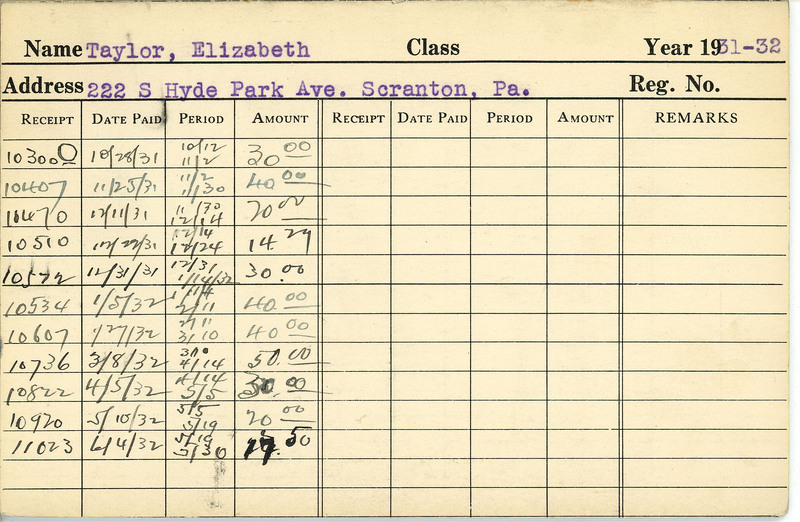 Name Taylor, Elizabeth Class Year 1931-32
Address 222 S Hyde Park Ave. Scranton, Pa. Reg. No.
RECEIPT DATE PAID PERIOD AMOUNT RECEIPT DATE PAID PERIOD AMOUNT REMARKS
10/12
10300 10/28/31 11/2 30.00
11/2
10407 11/25/31 11/30 40.00
11/30
10470 12/11/31 12/14 20.00
12/14
10510 12/22/31 12/24 14.29
12/31
12/31/31 1/14/32 30.00
1/14
10534 1/5/32 2/11 40.00
2/11
10607 1/27/32 3/10 40.00
3/10
10736 3/8/32 4/14 50.00
4/14
10822 4/5/32 5/5 30.00
5/5
10920 5/10/32 5/19 20.00
5/19
11023 6/4/32 5/30